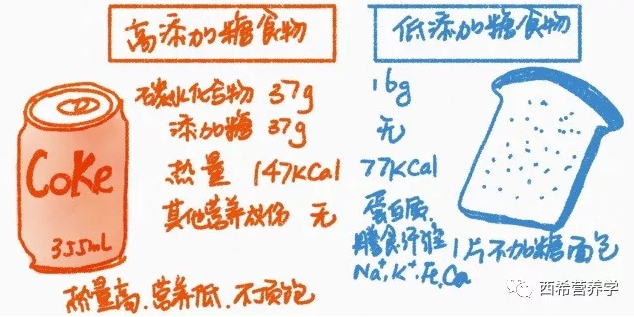 高添加糖食物 低添加糖食物
碳水化合物 37g 16g
添加糖 37g 无
热量 147KCal 77KCal
其他营养成份 无 蛋白质、
膳食纤维
Na⁺,K⁺,Fe,Ca
CoKe
355mL
1片不加糖面包
热量高、营养低、不顶饱
西希营养学